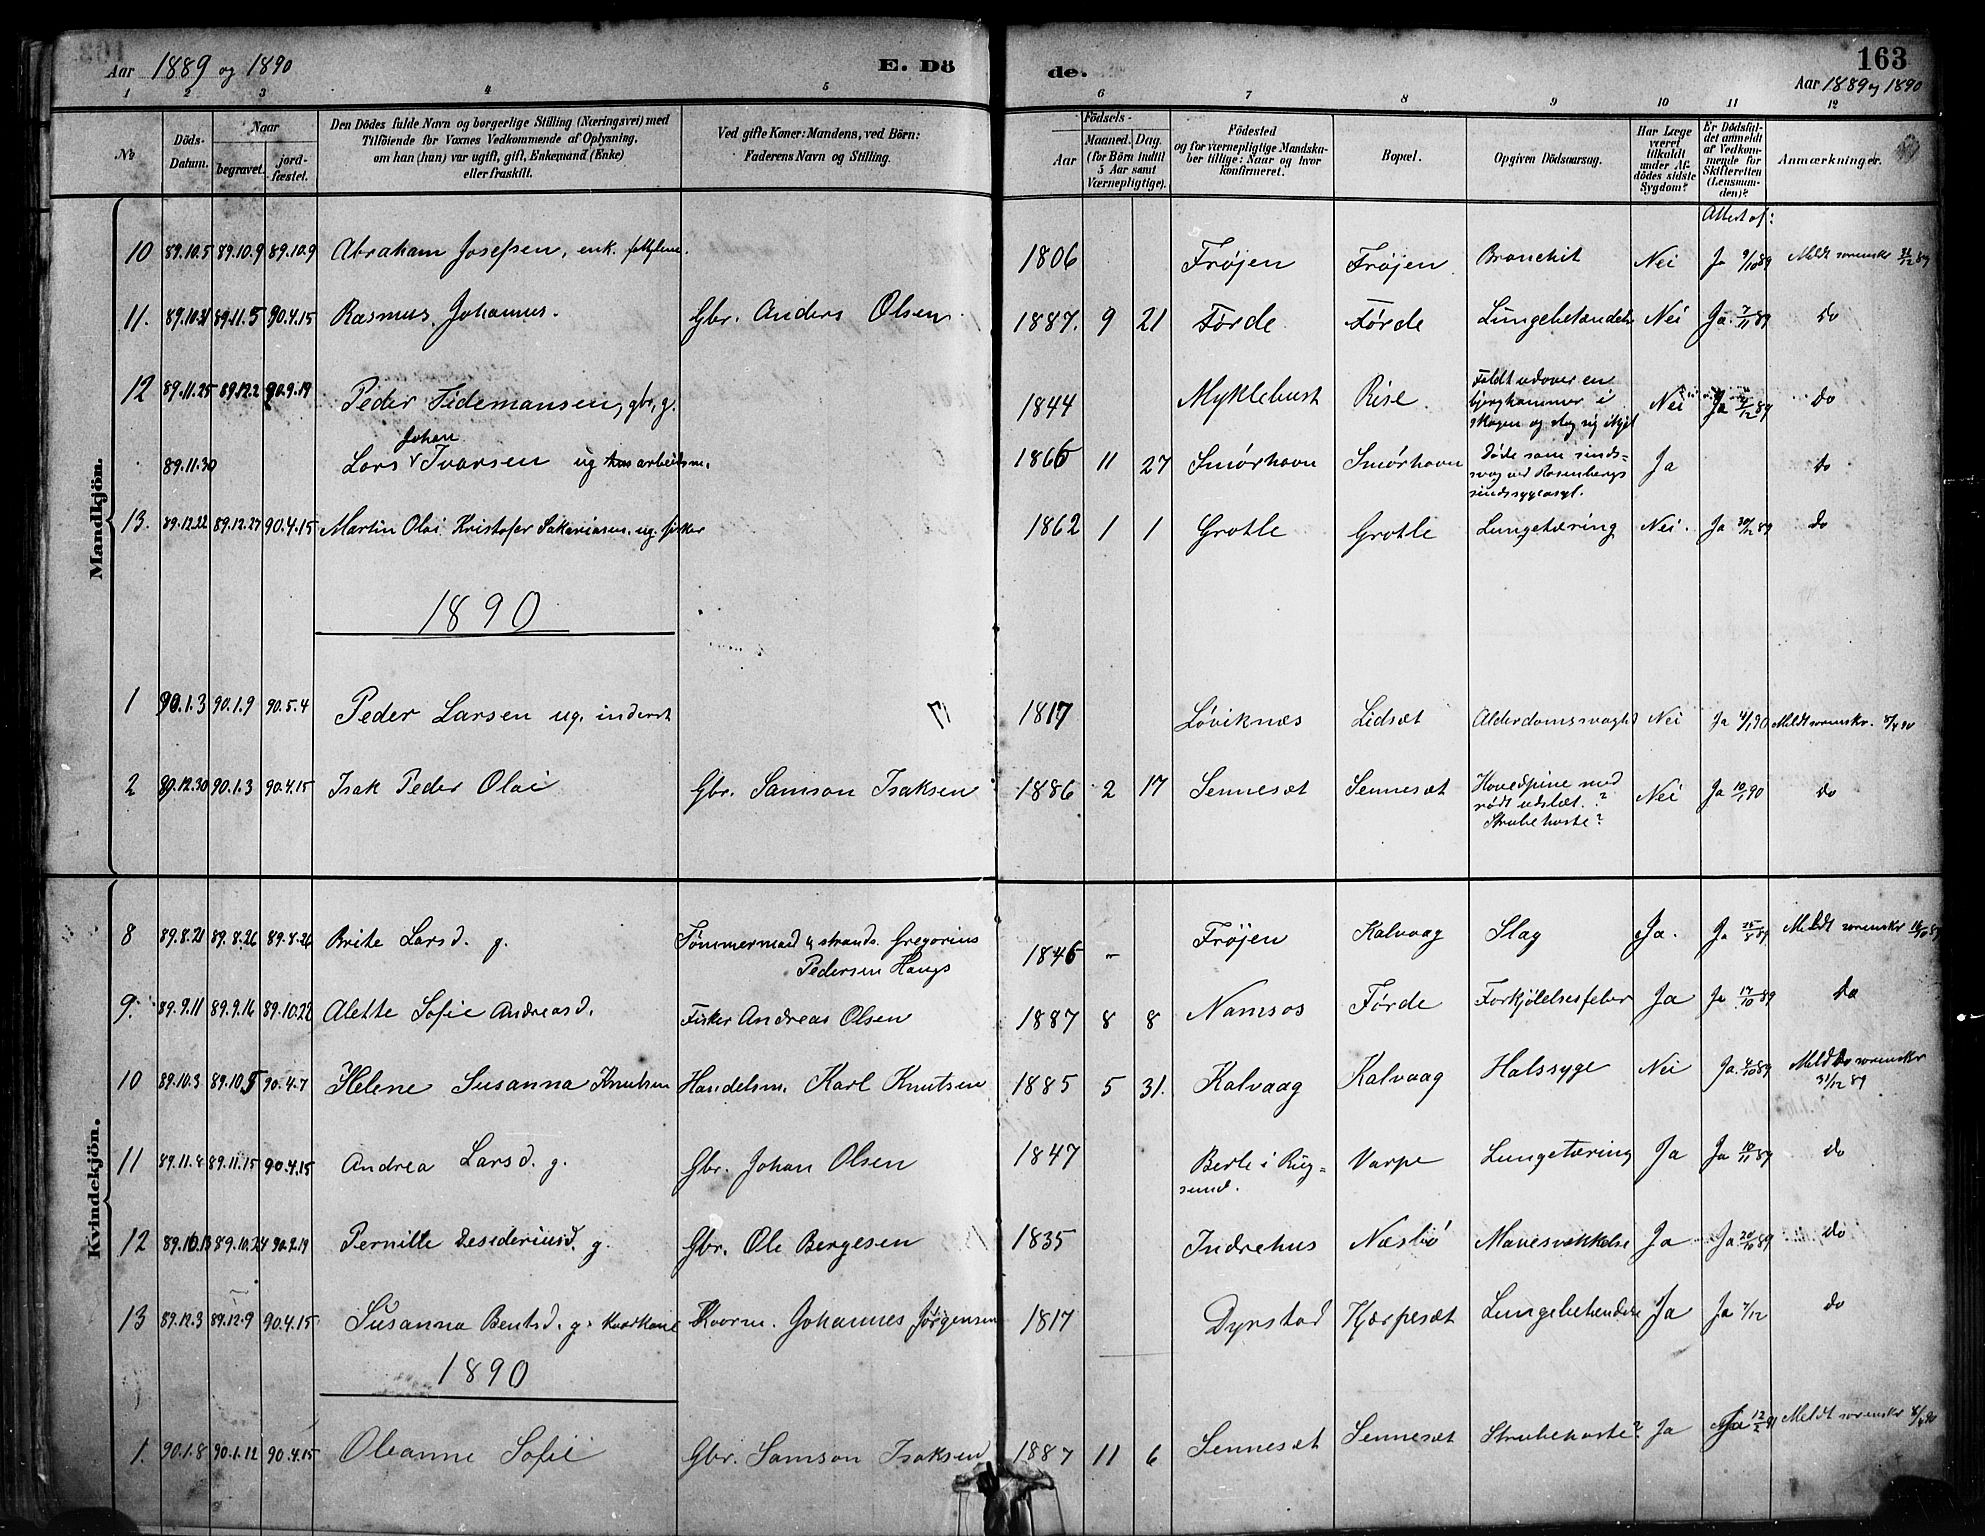 Aar 1889 og 1890 E. Dö de. 163
Aar 1889 og 1890
1 2 3 4 5 6 7 8 9 10 11 12
No
Döds-Datum.
Naar
begravet.
jord-fæstet.
Den Dödes fulde Navn og borgerlige Stilling (Næringsvei) med
Tilföiende for Voxnes Vedkommende af Oplysning,
om han (hun) var ugift, gift, Enkemand (Enke)
eller fraskilt.
Ved gifte Koner: Mandens, ved Börn:
Faderens Navn og Stilling.
Födsels-
Aar
Maaned. Dag.
(for Börn indtil
5 Aar samt
Værnepligtige).
Födested
og for værnepligtige Mandska-
ber tillige: Naar og hvor
konfirmeret.
Bopæl.
Opgiven Dödsaarsag.
Har Læge
været
tilkaldt
under Af-
dödes sidste
Sygdom?
Er Dödsfal-
det anmeldt
af Vedkom-
mende for
Skifteretten
(Lensman-
den)?
Anmærkninger.
Attest af:
Mandkjön.
10 89.10.5 89.10.9 89.10.9 Abraham Josefsen, enk. 1806 Frøjen Frøjen Bronchit Nei Ja 9/10 89 Meldt sorenskr 31/12 89
11. 89.10.31 89.11.5 90.4.15 Rasmus Johannes. Gbr. Anders Olsen 1887. 9 21 Førde Førde Lungebetændelse Nei Ja 7/11 89 do
12 89.11.25 89.12.2 90.9.19 Peder Tidemansen, gbr, g. 1844 Myklebust Rise Faldt udover en
bjerghammer i
skogen og slog sig ihjel Nei Ja 89 do
89.11.30 Lars Johan Ivarsen ug arbeidsm. 1866 11 27 Smørhavn Smørhavn Døde som sinds-
svag ved Rosenbergs
sindssygeasyl. Ja do
13. 89.12.22 89.12.27 90.4.15 Martin Olai Kristofer Sakariasen. ug. fisker 1862 1 1 Grotle Grotle Lungetæring Nei. Ja 30/12 89 do
1890
1 90.1.3 90.1.9 90.5.4 Peder Larsen ug. inderst 17 1817 Løviknæs Lidsæt Alderdomssvaghd Nei Ja 4/1 90 Meldt sorenskr. 8/4 90
2 89.12.30 90.1.3 90.4.15 Isak Peder Olai Gbr. Samson Isaksen 1886 2 17 Sennesæt Sennesæt Hovedpine med
rødt udslæt. ?
Strubehoste? Nei Ja 10/1 90 do
Kvindekjön.
8 89.8.21 89.8.26 89.8.26 Brite Larsd. g. Tømmermand & strands. Gregorius
Pedersen Haugs 1846 - Frøjen Kalvaag Slag Ja. Ja 25/8 89 Meldt sorenskr 89
9. 89.9.11 89.9.16 89.10.22 Alette Sofie Andreasd. Fisker Andreas Olsen 1887 8 8 Namsos Førde Forkjølelsesfeber Ja Ja 17/10 89 Do
10 89.10.3 89.10.5 90.4.7 Helene Susanna Knutsen Handelsm. Karl Knutsen 1885 5 31. Kalvaag Kalvaag Halssyge Nei Ja 4/10 89 Meldt sorenskr
31/12 89
11 89.11.8 89.11.15 90.4.15 Andrea Larsd. g. Gbr. Johan Olsen 1847 Berle i Rug-
sund. Varpe Lungetæring Ja Ja 18/11 89 do
12 89.10.13 89.10.24 90.2.19 Pernille Desideriusd. g. Gbr. Ole Børgesen 1835 Indrehus Næsbø Mavesvækkelse Ja Ja 20/10 89 do
13 89.12.3 89.12.9 90.4.15 Susanna Bentsd. g. Kaarkone Kaarm. Johannes Jørgensen 1817 Dyrstad Hjærpesæt Lungebetændelse Ja Ja 7/12 do
1890
1. 90.1.8 90.1.12 90.4.15 Oleanne Sofie Gbr. Samson Isaksen 1887 11 6 Sennesæt Sennesæt Strubehoste? Ja Ja 12/2 91 Meldt sorenskr 8/4 90